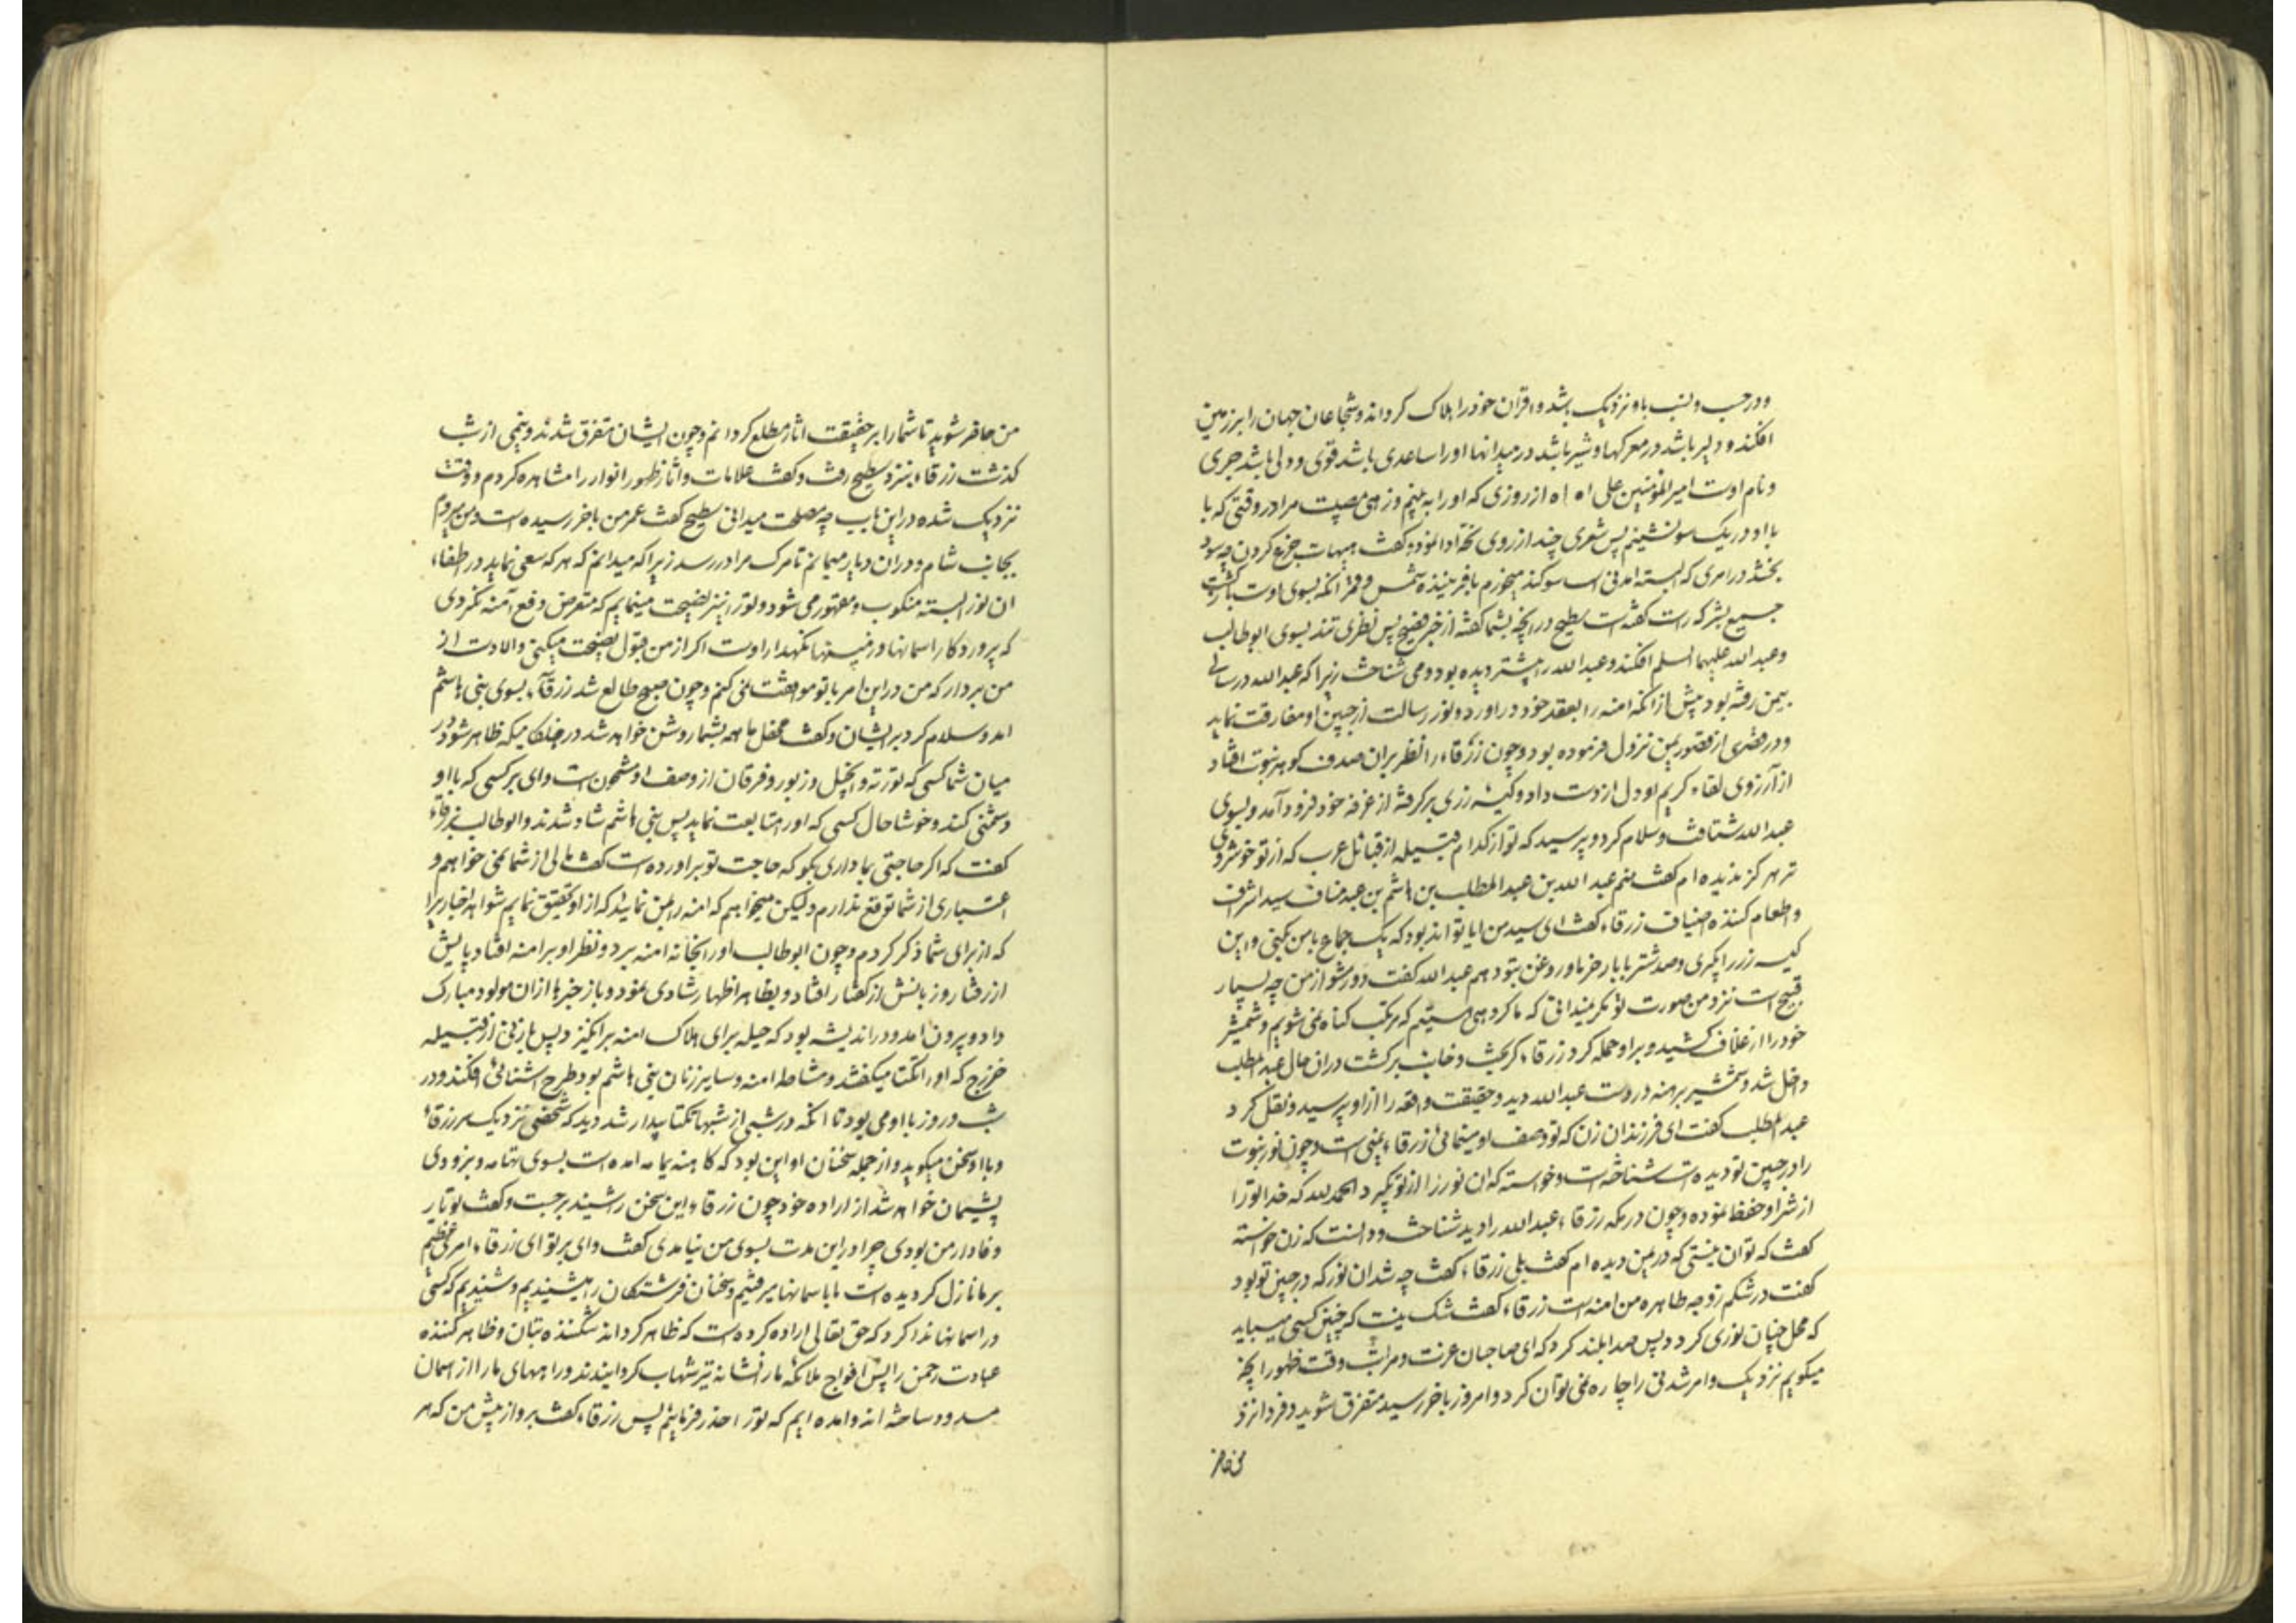 ودر حسب و نسب باو نزدیک باشد و اقران خود را هلاک کرداند و شجاعان جهان را بر زمین
افکند و دلیر باشد در معرکها و شیر باشد در میدانها او را ساعدی باشد قوی و دلی باشد جری
و نام اوست امیر المؤمنین علی اه اه از روزی که او را به بینم وزهی مصیبت مرا در وقتی که با
با او در یک سو نشینم پس شعری چند از روی تحه ادا نموده و کفت هیهات جزع کردن چه سود
بخشد در امری که البته امدنی است سوکند میخورم بافریننده شمس و قمر انکه بسوی اوست بازکشت
جمیع بشر که راست کفته است سطیح در انچه بشما کفته از خبر فصیح پس نظری تند بسوی ابوطالب
و عبد الله علیهما السلم افکند و عبد الله را پیشتر دیده بود و می شناخت زیرا که عبد الله در سالی
بیمن رفته بود پیش از انکه امنه را بعقد خود در اورد و نور رسالت از جبین او مفارقت نماید
و در قصری از قصور یمن نزول فرموده بود و چون زرقاء را نظر بران صدف کوهر نبوت افتاد
از آرزوی لقاء کریم او دل از دست داد و کیسه زری برکرفته از غرفه خود فرود آمد و بسوی
عبد الله شتافت و سلام کرد و پرسید که تو از کدام قبیله از قبائل عرب که از تو خوشروی
تر هرکز ندیده ام کفت منم عبد الله بن عبد المطلب بن هاشم بن عبد مناف سید اشراف
و اطعام کننده اضیاف زرقاء کفت ای سید من ایا تواند بود که یک جماع با من بکنی و این
کیسه زر را بکیری و صد شتر با بار خرما و روغن بتو دهم عبد الله کفت دور شو از من چه بسیار
قبیح است نزد من صورت تو مکر نمیدانی که ما کروهی هستیم که مرتکب کناه نمی شویم و شمشیر
خود را از غلاف کشید و بر او حمله کرد زرقاء کریخت و خائب برکشت دران حال عبد المطلب
داخل شد و شمشیر برهنه در دست عبد الله دید و حقیقت واقعه را از او پرسید و نقل کرد
عبد المطلب کفت ای فرزند ان زن که تو وصف او مینمائی زرقاء یمنی است و چون نور نبوت
را در جبین تو دیده است شناخته است و خواسته که ان نور را از تو بکیرد الحمد لله که خدا تو را
از شر او حفظ نموده و چون در مکه زرقاء عبد الله را دید شناخت و دانست که زن خواسته
کفت که تو ان نیستی که در یمن دیده ام کفت بلی زرقاء کفت چه شد ان نور که در جبین تو بود
کفت در شکم زوجه طاهره من امنه است زرقاء کفت شک نیست که چنین کسی میباید
که محل چنان نوری کردد پس صدا بلند کرد که ای صاحبان عزت و مراتب وقت ظهور انچه
میکویم نزدیک و امر شدنی را چاره نمی توان کرد و امروز باخر رسید متفرق شوید و فردا نزد
من حاضر
من حاضر شوید تا شما را بر حقیقت اثار مطلع کردانم و چون ایشان متفرق شدند و نیمی از شب
کذشت زرقاء بنزد سطیح رفت و کفت علامات و اثار ظهور انوار را مشاهده کردم و وقت
نزدیک شده در این باب چه مصلحت میدانی سطیح کفت عمر من باخر رسیده است و من میروم
بجانب شام و در ان دیار میمانم تا مرک مرا در رسد زیرا که میدانم که هر که سعی نماید در اطفاء
ان نور البته منکوب و مقهور می شود و تو را نیز نصیحت مینمایم که متعرض دفع آمنه نکردی
که پروردکار اسمانها و زمینها نکهدار اوست اکر از من قبول نصیحت میکنی و الا دست از
من بردار که من در این امر با تو موافقت نمی کنم و چون صبح طالع شد زرقاء بسوی بنی هاشم
امد و سلام کرد بر ایشان و کفت محفل ما همه بشما روشن خواهد شد در هنکامیکه ظاهر شود در
میان شما کسی که تورته و انجیل و زبور و فرقان از وصف او مشحون است وای بر کسی که با او
دشمنی کند و خوشا حال کسی که او را متابعت نماید پس بنی هاشم شاد شدند و ابوطالب بزرقاء
کفت که اکر حاجتی بما داری بکو که حاجت تو براورده است کفت مالی از شما نمی خواهم و
اعتباری از شما توقع ندارم و لیکن میخواهم که امنه را بمن نمایند که از او تحقیق نمایم شواهد اخباریرا
که از برای شما ذکر کردم و چون ابوطالب او را بخانه امنه برد و نظر او بر امنه افتاد پایش
از رفتار و زبانش از کفتار افتاد و بظاهر اظهار شادی نمود و باز خبرها از ان مولود مبارک
داد و بیرون امد و در اندیشه بود که حیله برای هلاک امنه برانکیزد پس با زنی از قبیله
خزرج که او را تکنا میکفتند و مشاطه امنه و سایر زنان بنی هاشم بود طرح اشنائی افکند و در
شب و روز با او می بود تا انکه در شبی از شبها تکنا بیدار شد دید که شخصی نزدیک سر زرقاء
و با او سخن میکوید و از جمله سخنان او این بود که کاهنه یمامه امده است بسوی تهامه و بزودی
پشیمان خواهد شد از اراده خود چون زرقاء این سخن را شنید برجست و کفت تو یار
وفادار من بودی چرا در این مدت بسوی من نیامدی کفت وای بر تو ای زرقاء امر عظیم
بر ما نازل کردیده است ما باسمانها میرفتیم و سخنان فرشتکان را میشنیدیم و شنیدیم که کسی
در اسمانها ندا کرد که حق تعالی اراده کرده است که ظاهر کرداند شکننده بتان و ظاهر کننده
عبادت رحمن را پس افواج ملائکه ما را نشانه تیر شهاب کردانیدند و راههای ما را از اسمان
مسدود ساخته اند و امده ایم که تو را حذر فرمائیم پس زرقاء کفت برو از پیش من که هر